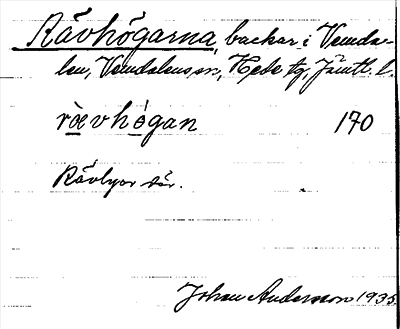 Rävhögarna, backar i Vemda-
len, Vemdalens sn, Hede tg, Jämtl. l.
ròevhögan 170
Rävlyor där.
Johan Andersson 1935.